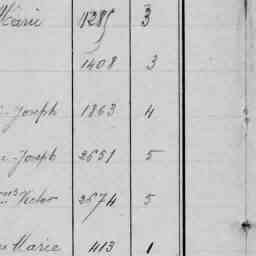 Marie 1285 3
1408 3
Joseph 1863 4
Joseph 2651 5
Victor 2674 5
Marie 413 1